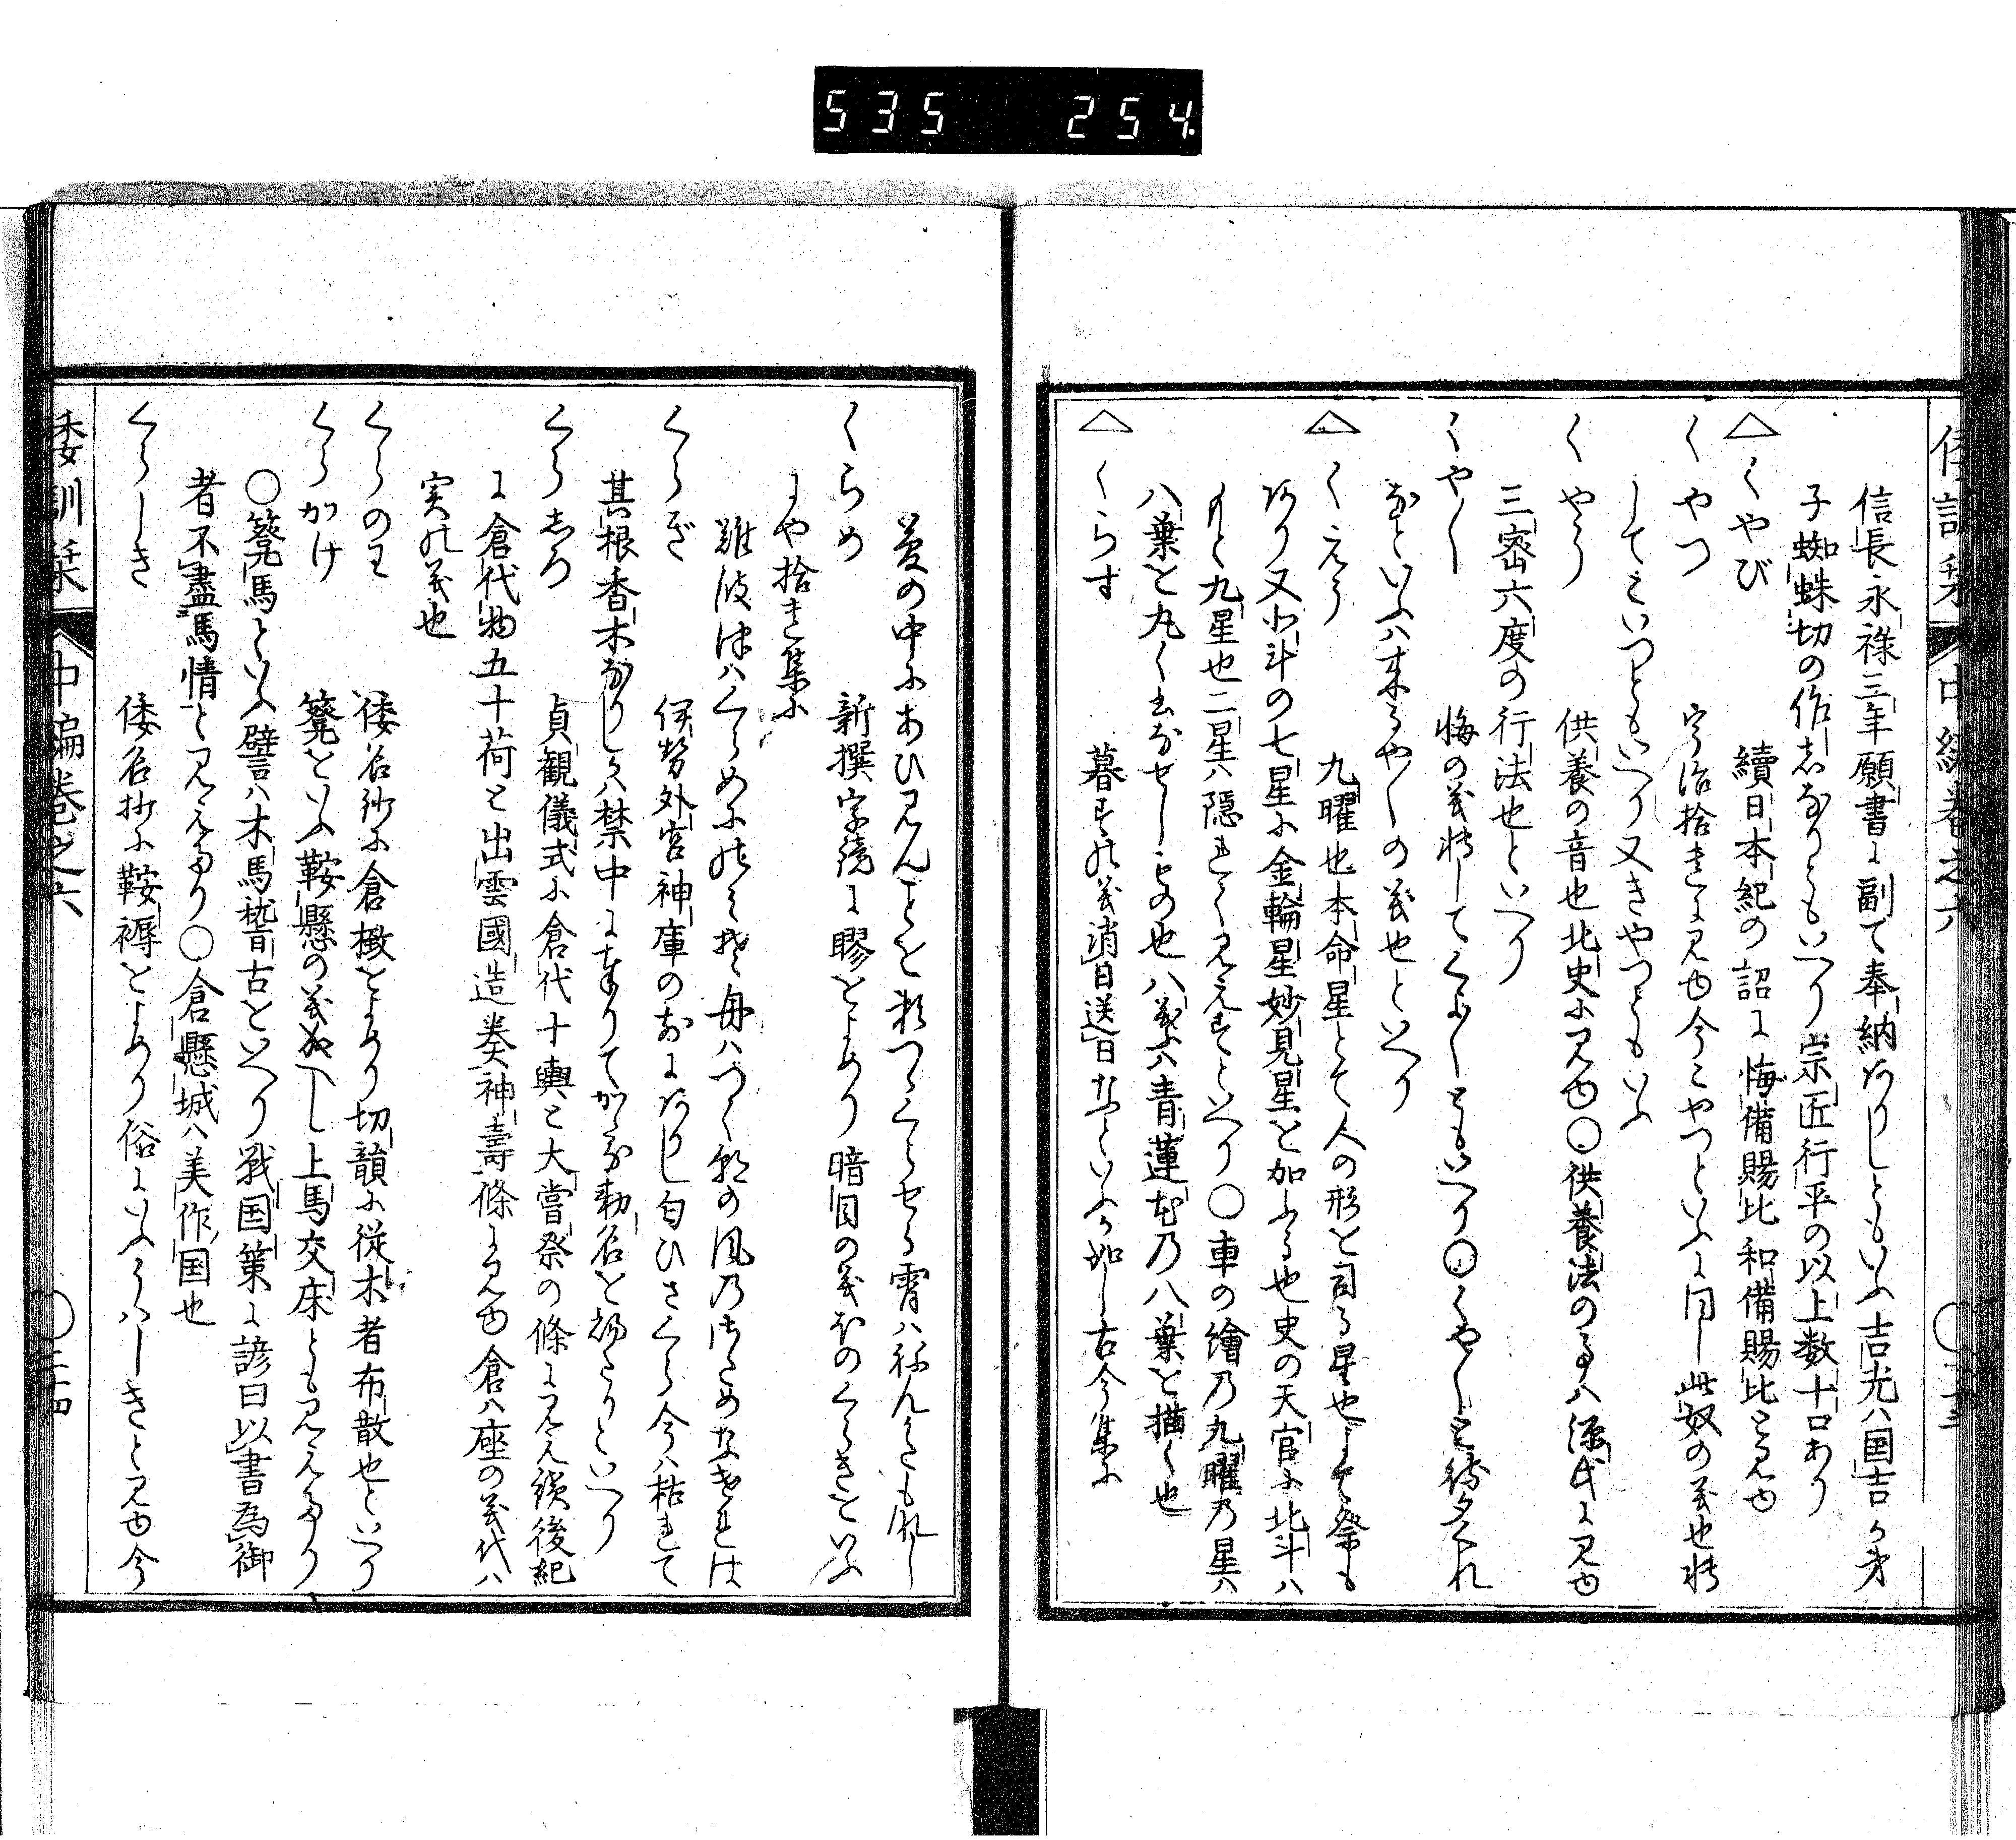 535 254
倭訓栞 中編巻之六 ○三十三
信長永禄三年願書に副て奉納ありしともいふ吉光ハ国吉か弟
子蜘蛛切の作者なりともいへり宗匠行平の以上数十口あり
△くやび 續日本紀の詔に悔備賜比和備賜比と見ゆ
くやつ 宇治拾遺に見ゆ今こやつといふに同し此奴の義也轉
してえいつともいへり又きやつともいふ
くやう 供養の音也北史に見ゆ○供養法の事ハ源氏に見ゆ
三密六度の行法也といへり
くや〳〵 悔の義轉してくよ〳〵ともいへり○くや〳〵と待夕くれ
なといふハ来るや〳〵の義也といへり
△くえう 九曜也本命星とて人の形を司る星也よて祭も
あり又北斗の七星に金輪星妙見星を加ふる也史の天官に北斗ハ
もと九星也二星ハ隠れて見えすといへり○車の繪乃九曜乃星ハ
八葉を丸く書なせしもの也八義ハ青蓮花乃八葉を描く也
△くらす 暮すの義消日送日なといふか如し古今集に
夢の中にあひ見んことを頼つゝくらせる宵ハねんかたもなし
くらめ 新撰字鏡に膠をよめり暗目の義ほのくらきをいふ
にや拾遺集に
難波津ハくらめにのみそ舟ハつく朝の風乃さためなけれは
くらぎ 伊勢外宮神庫のあにありし匂ひさくら今ハ枯れて
其根香木なりしか禁中に奉りてかゝる勅名を賜るといへり
くらしろ 貞観儀式に倉代十輿と大嘗祭の條に見え續後紀
に倉代物五十荷と出雲國造奏神壽條に見ゆ倉ハ座の義代ハ
実の義也
くらのわ 倭名鈔に倉檄をよめり切韻に従木者布散也といへり
くらかけ 鞍をいふ鞍懸の義なへし上馬交床とも見えたり
○凳馬といふ譬ハ木馬稽古をいへり戦国策に諺曰以書為御
者不盡馬情と見えたり○倉懸城ハ美作国也
くらしき 倭名抄に鞍褥をよめり俗にいふうハしきと見ゆ今
倭訓栞 中編巻之六 ○三十四